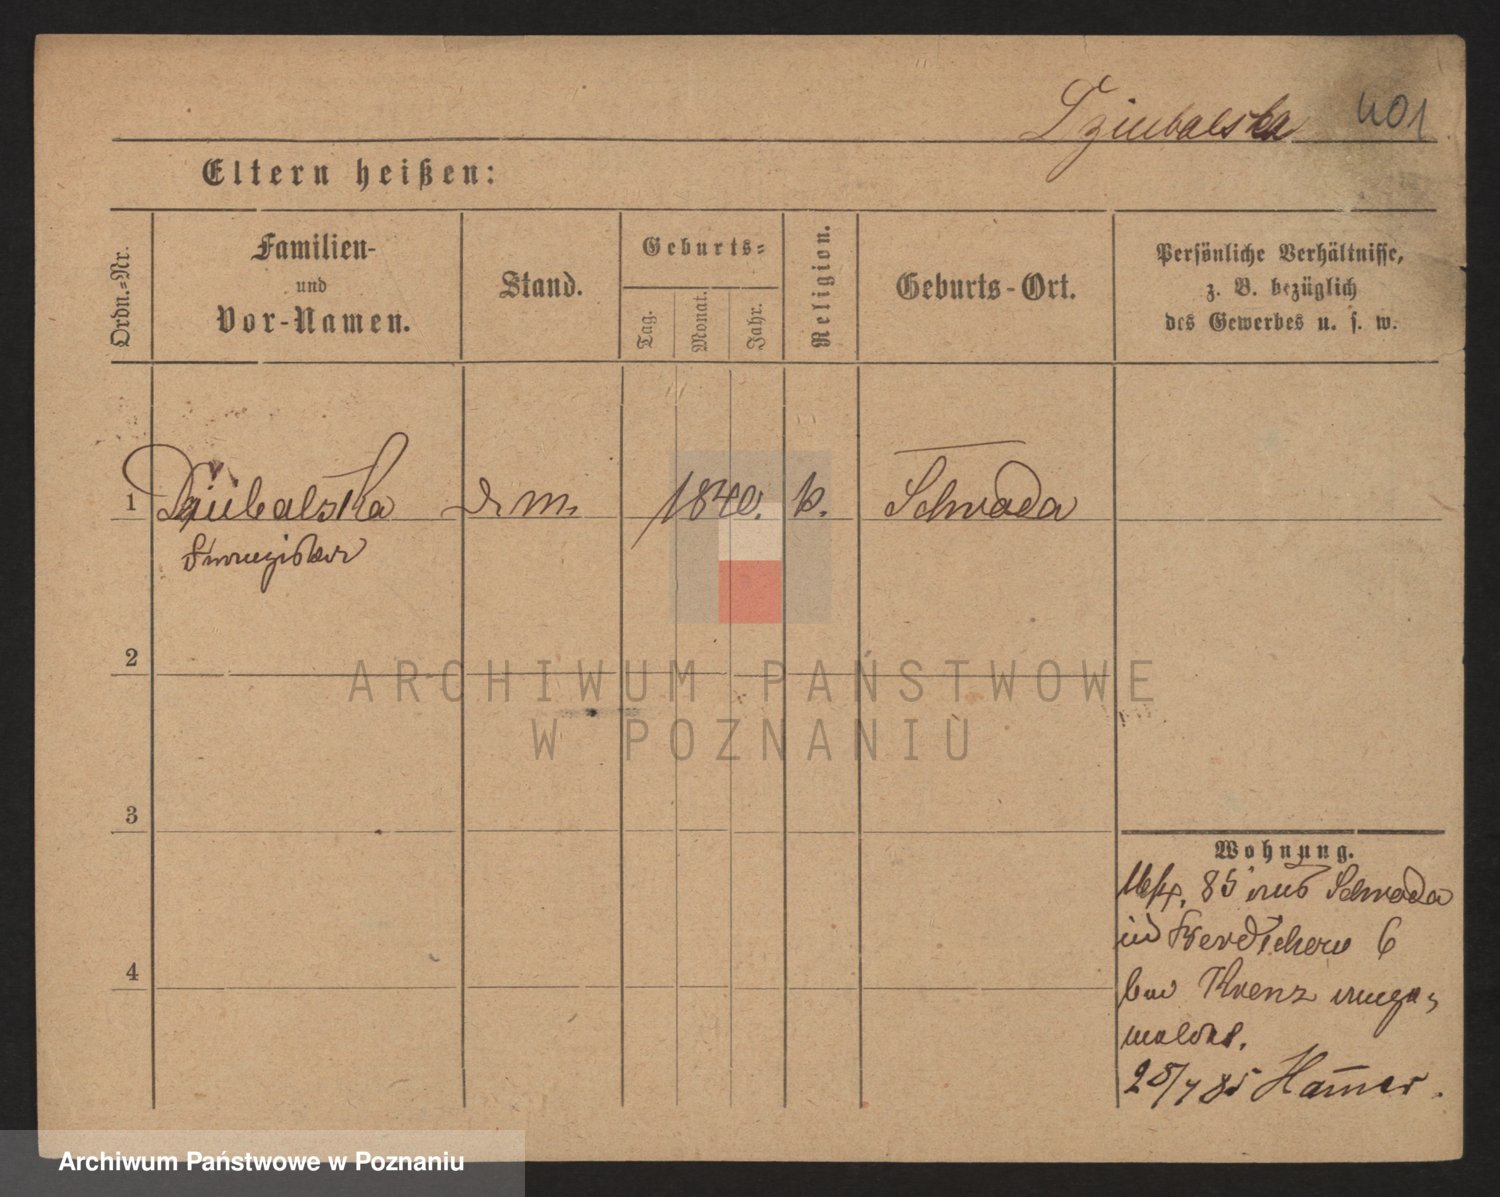 Dziubalska 401
Eltern heißen:
Ordn.-Nr.
Familien-
und
Vor-Namen.
Stand.
Geburts-
Tag.
Monat.
Jahr.
Religion.
Geburts-Ort.
Persönliche Verhältnisse,
z. B. bezüglich
des Gewerbes u. s. w.
1 Dziubalska 1840. k. Schroda
Franziska
2
ARCHIWUM PAŃSTWOWE
W POZNANIU
3
Wohnung.
85 aus Schroda
in 6
bei Krenz ange-
meldet.
25/7 85 Hamer.
4
Archiwum Państwowe w Poznaniu